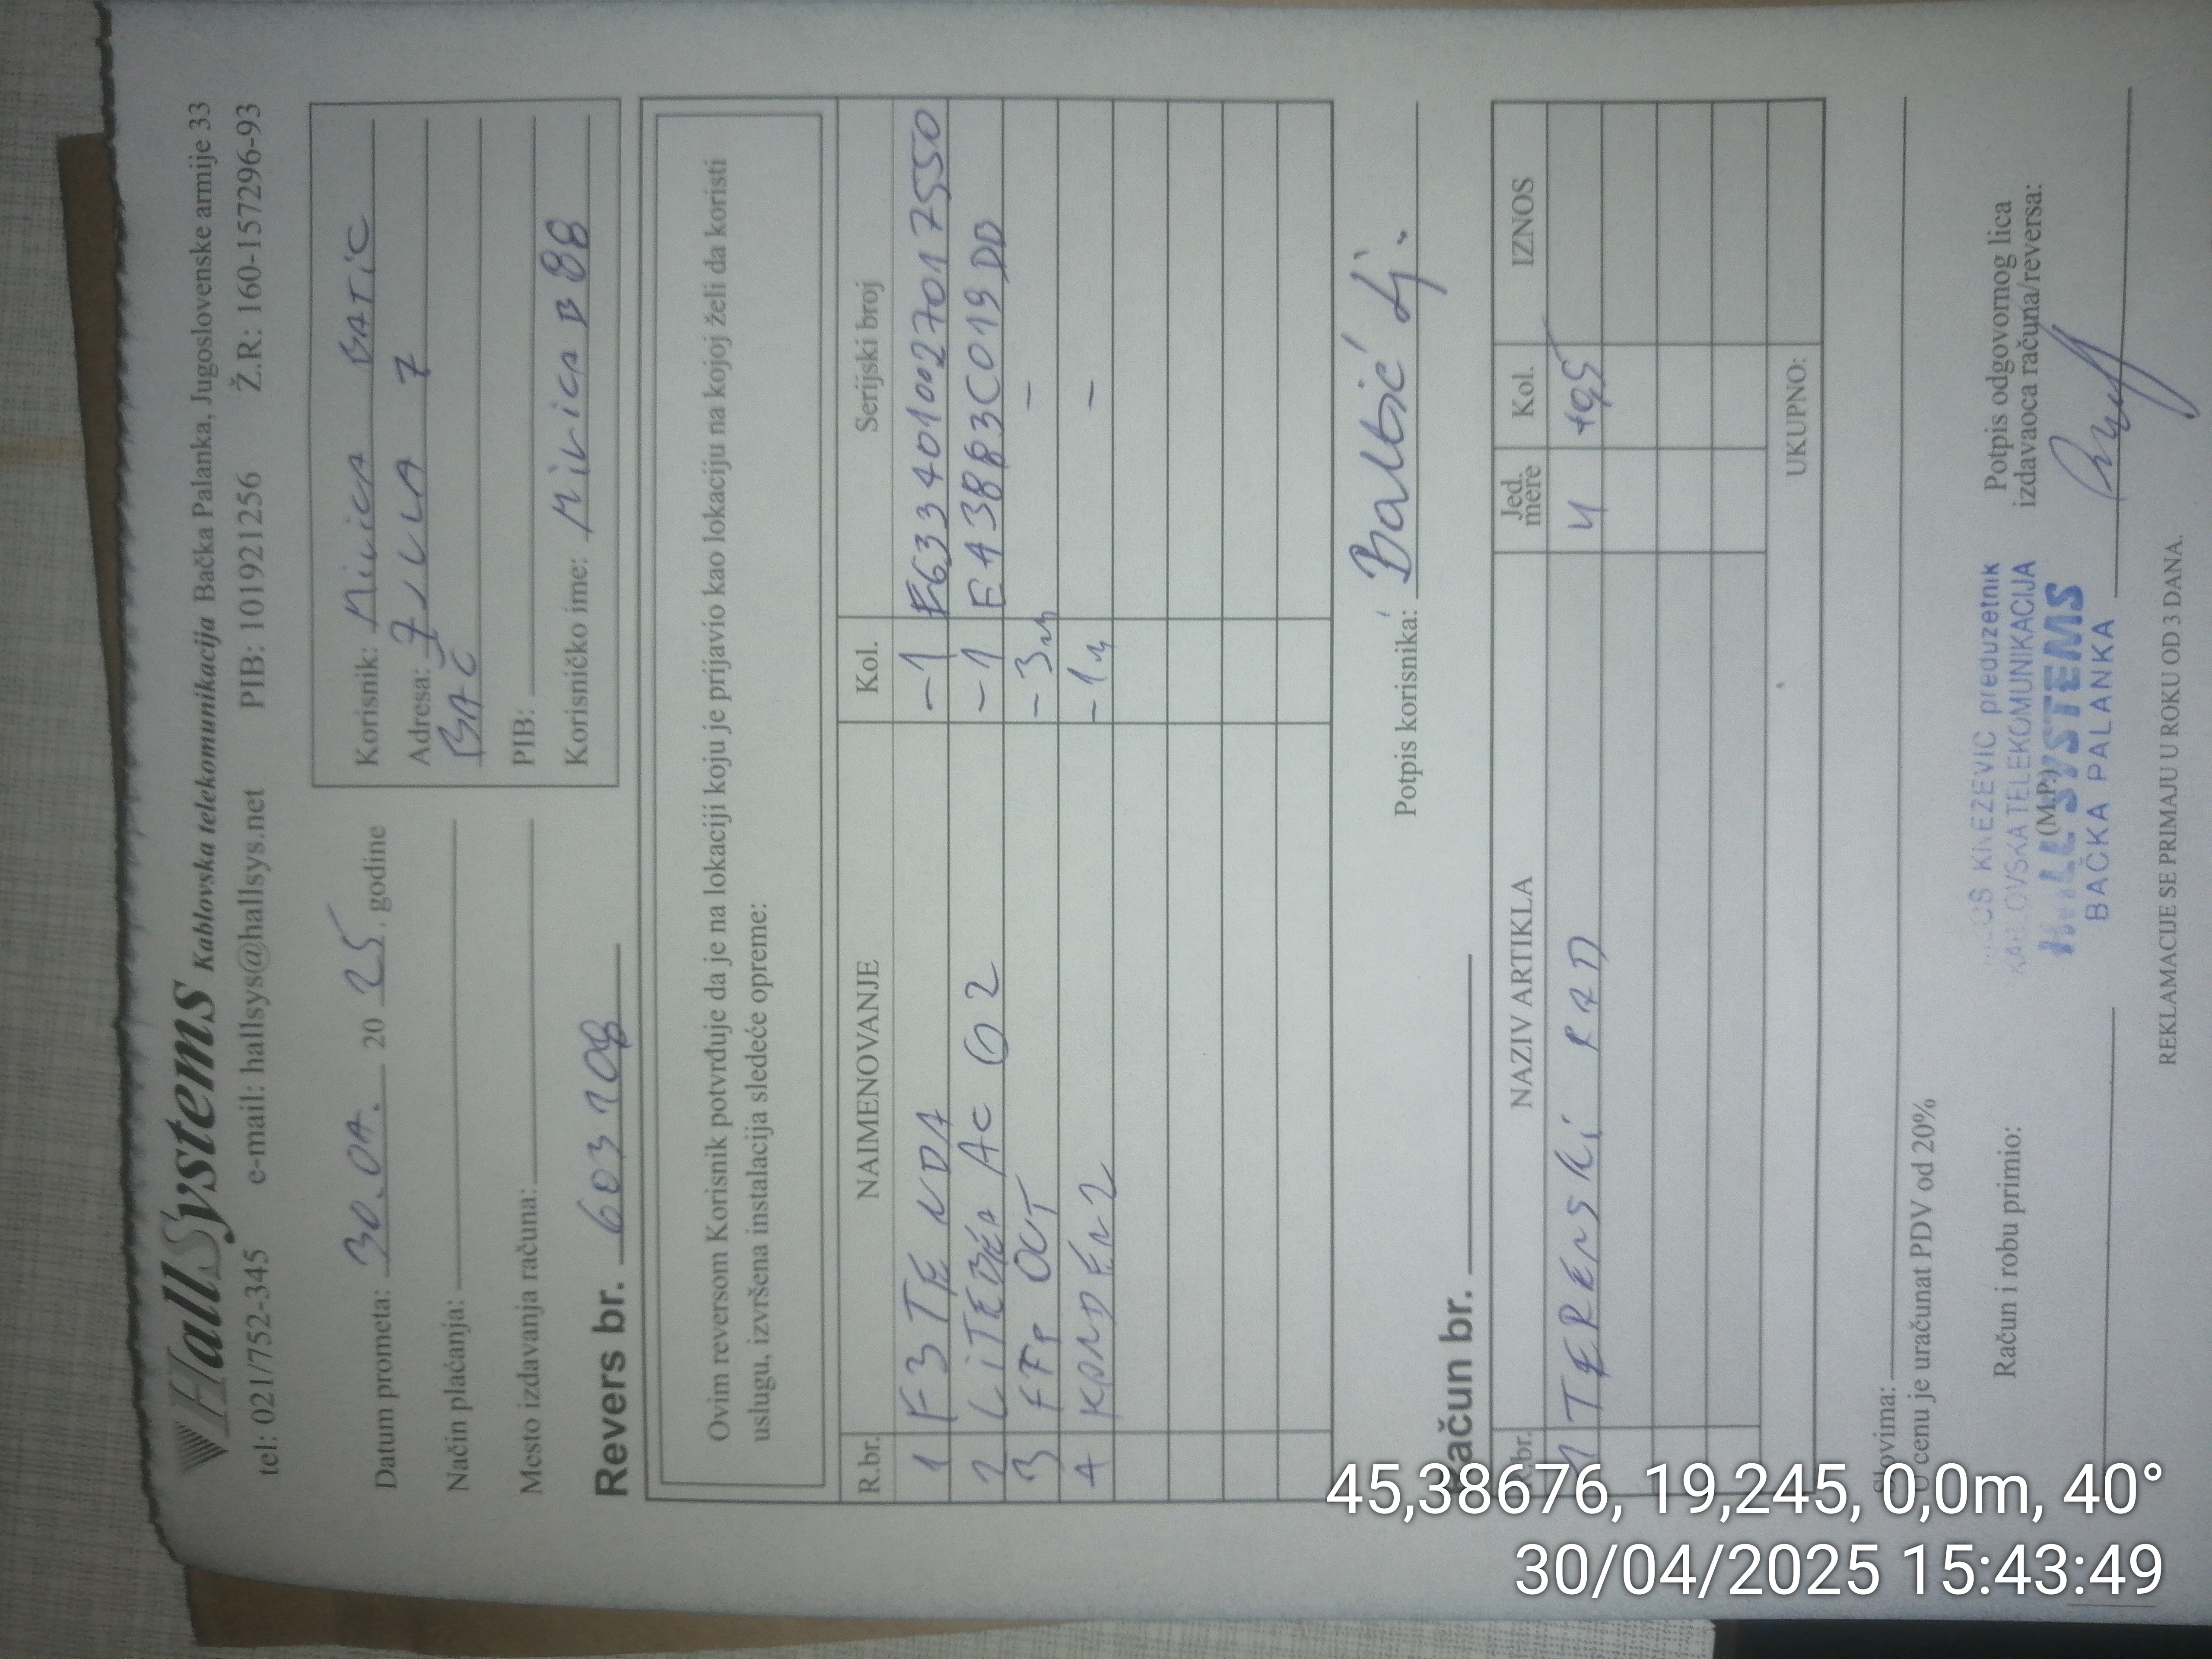 HallSystems Kablovska telekomunikacija Bačka Palanka, Jugoslovenske armije 33
tel: 021/752-345 e-mail: hallsys@hallsys.net PIB: 101921256 Ž.R: 160-157296-93
Datum prometa: 30.04. 20 25. godine
Način plaćanja:
Mesto izdavanja računa:
Korisnik: Milica BATiC
Adresa: 7 JULA 7
BAČ
PIB:
Korisničko ime: MiLiCA B 88
Revers br. 603708
Ovim reversom Korisnik potvrđuje da je na lokaciji koju je prijavio kao lokaciju na kojoj želi da koristi
uslugu, izvršena instalacija sledeće opreme:
R.br. NAIMENOVANJE Kol. Serijski broj
1 F3 TENDA -1 E6334010027017550
2 LiTEBEA AC G2 -1 E43883C019DD
3 FTP OUT -3m -
4 KONDEN2 -1m -
Potpis korisnika: Ba Lj.
Račun br.
R.br. NAZIV ARTIKLA Jed. mere Kol. IZNOS
1 TERENSKi RAD 4 +0,5
UKUPNO:
Slovima:
U cenu je uračunat PDV od 20%
Račun i robu primio:
(M.P.)
KNEZEVIC preduzetnik
KABLOVSKA TELEKOMUNIKACIJA
HALL SYSTEMS
BAČKA PALANKA
Potpis odgovornog lica
izdavaoca računa/reversa:
REKLAMACIJE SE PRIMAJU U ROKU OD 3 DANA.
45,38676, 19,245, 0,0m, 40°
30/04/2025 15:43:49